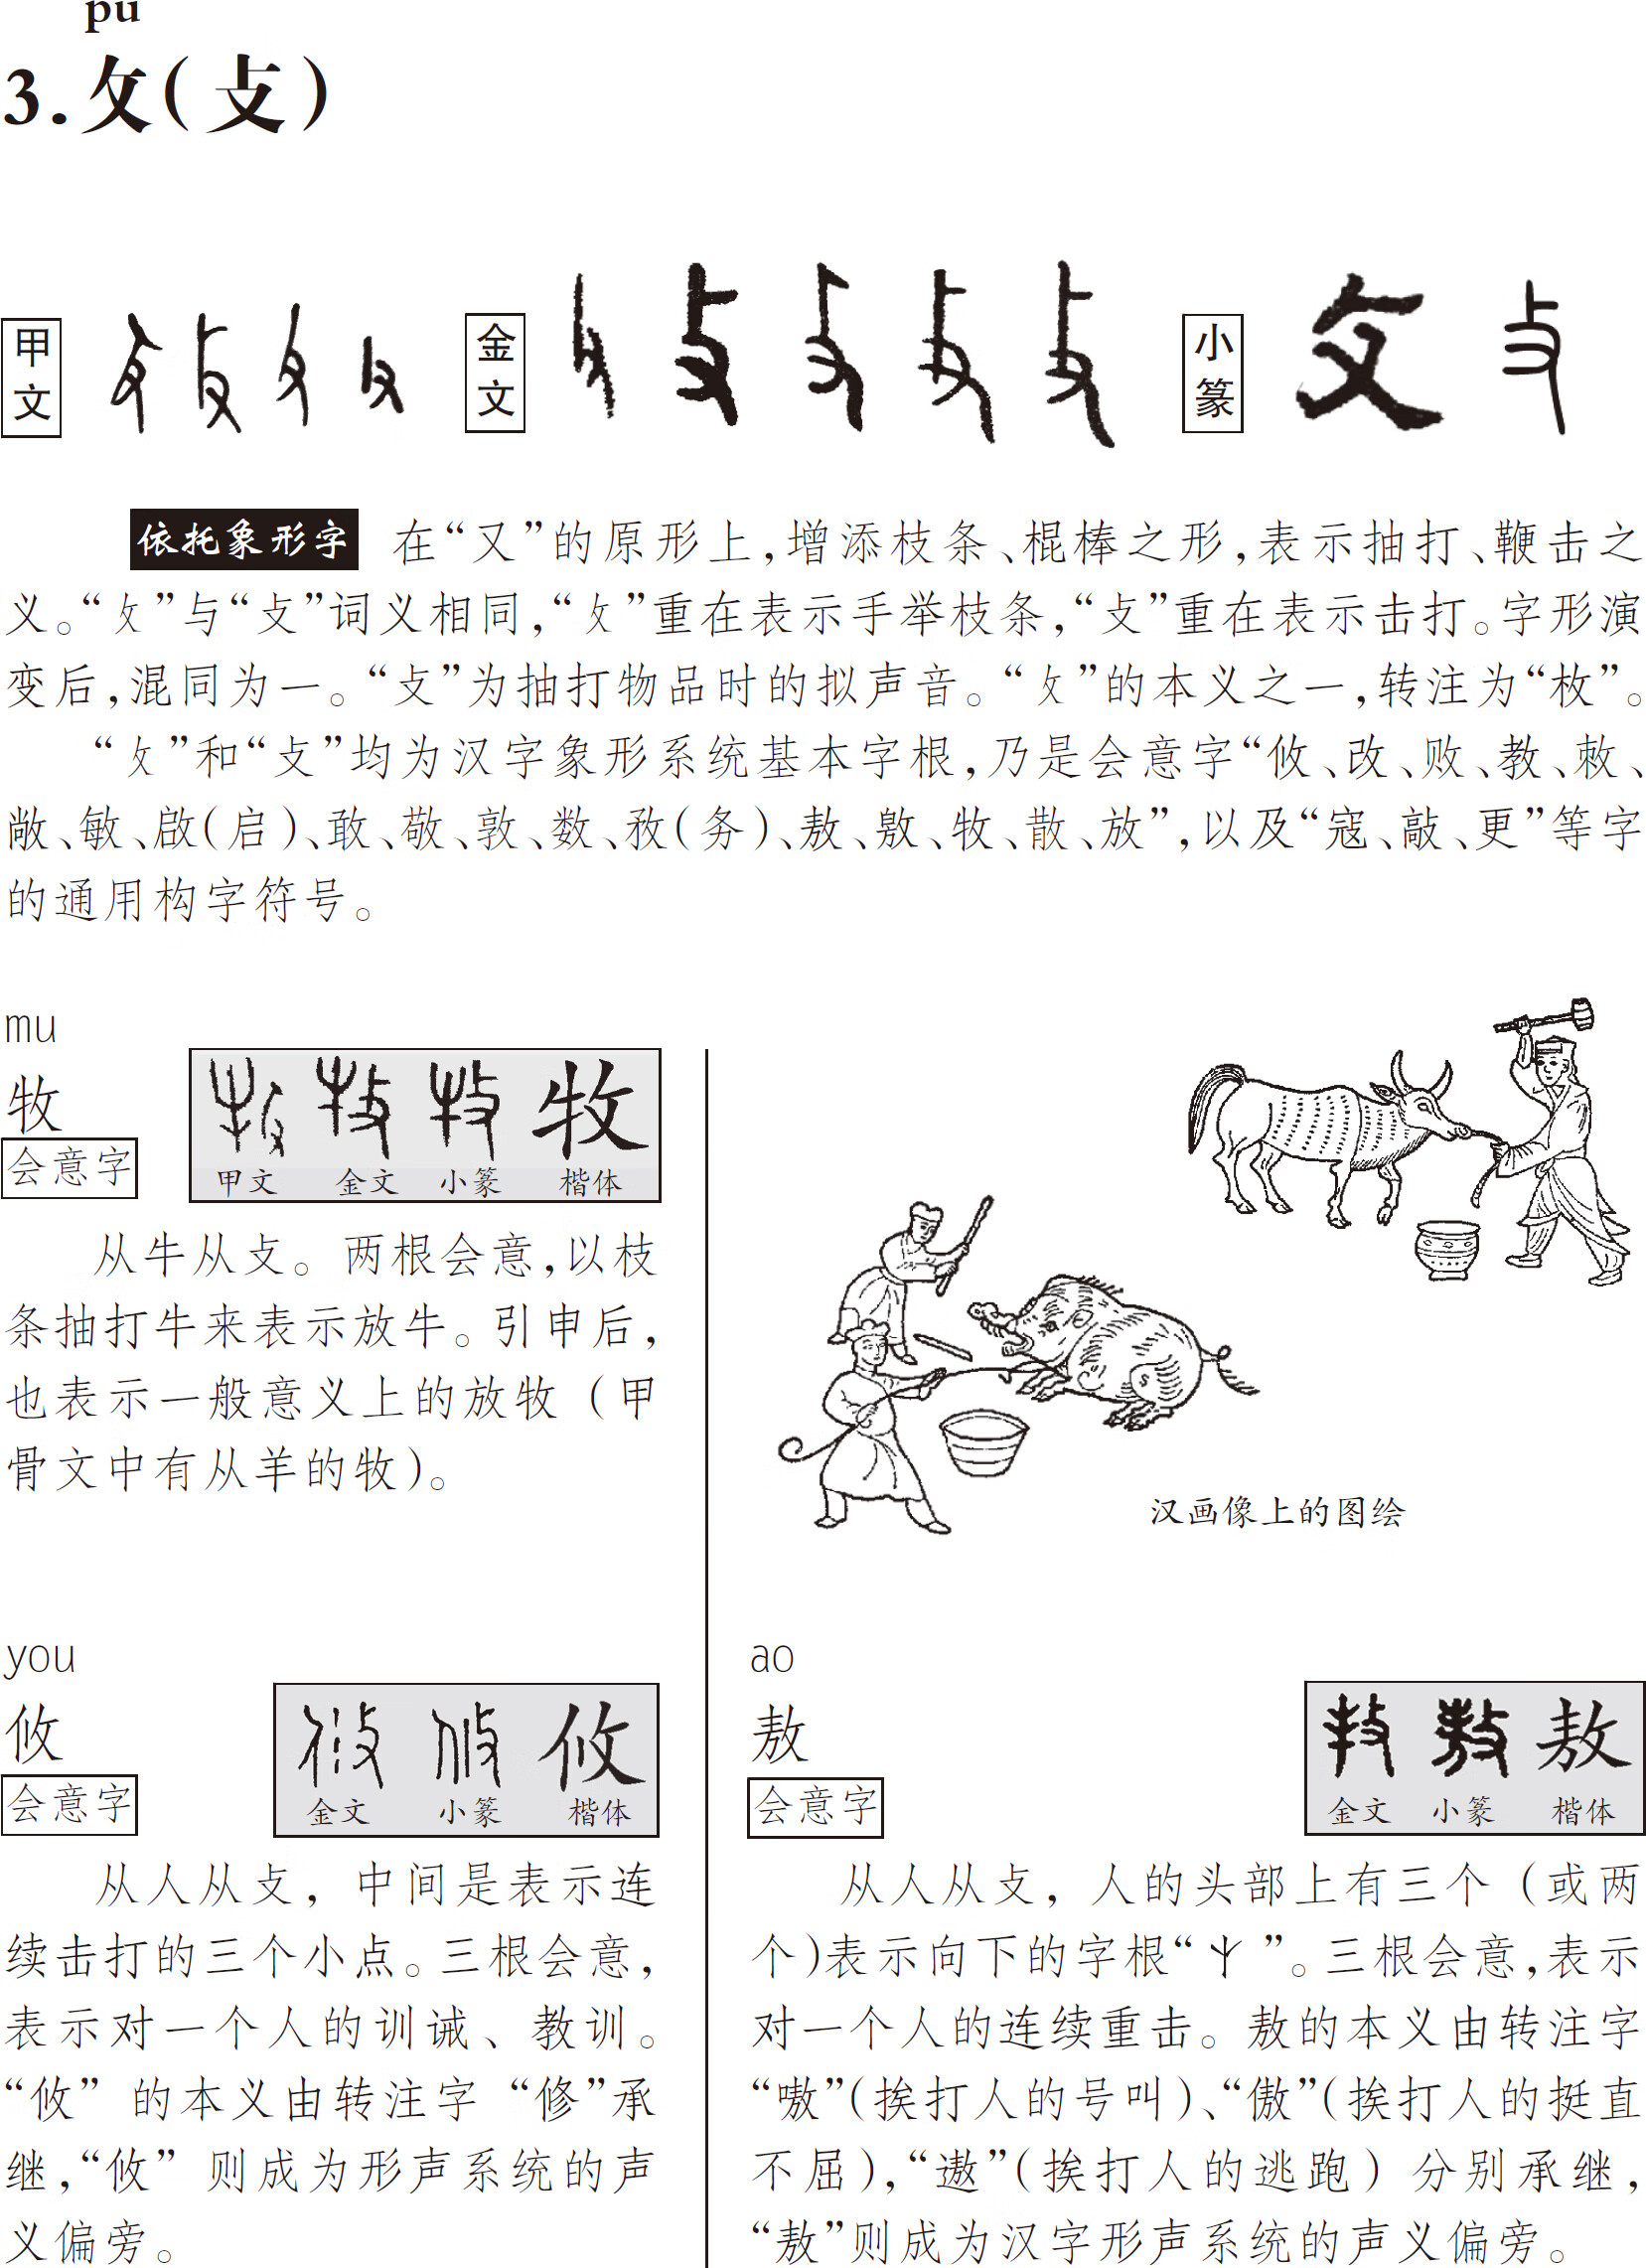 pu
3.攵(攴)
甲文
金文
小篆
依托象形字 在“又”的原形上,增添枝条、棍棒之形,表示抽打、鞭击之
义。“攵”与“攴”词义相同,“攵”重在表示手举枝条,“攴”重在表示击打。字形演
变后,混同为一。“攴”为抽打物品时的拟声音。“攵”的本义之一,转注为“枚”。
“攵”和“攴”均为汉字象形系统基本字根,乃是会意字“攸、改、败、教、敕、
敞、敏、啟(启)、敢、敬、敦、数、孜(务)、敖、敫、牧、散、放”,以及“寇、敲、更”等字
的通用构字符号。
mu
牧
会意字
牧
甲文 金文 小篆 楷体
从牛从攴。两根会意,以枝
条抽打牛来表示放牛。引申后,
也表示一般意义上的放牧(甲
骨文中有从羊的牧)。
汉画像上的图绘
you
攸
会意字
攸
金文 小篆 楷体
从人从攴,中间是表示连
续击打的三个小点。三根会意,
表示对一个人的训诫、教训。
“攸”的本义由转注字“修”承
继,“攸”则成为形声系统的声
义偏旁。
ao
敖
会意字
敖
金文 小篆 楷体
从人从攴,人的头部上有三个(或两
个)表示向下的字根“”。三根会意,表示
对一个人的连续重击。敖的本义由转注字
“嗷”(挨打人的号叫)、“傲”(挨打人的挺直
不屈),“遨”(挨打人的逃跑)分别承继,
“敖”则成为汉字形声系统的声义偏旁。